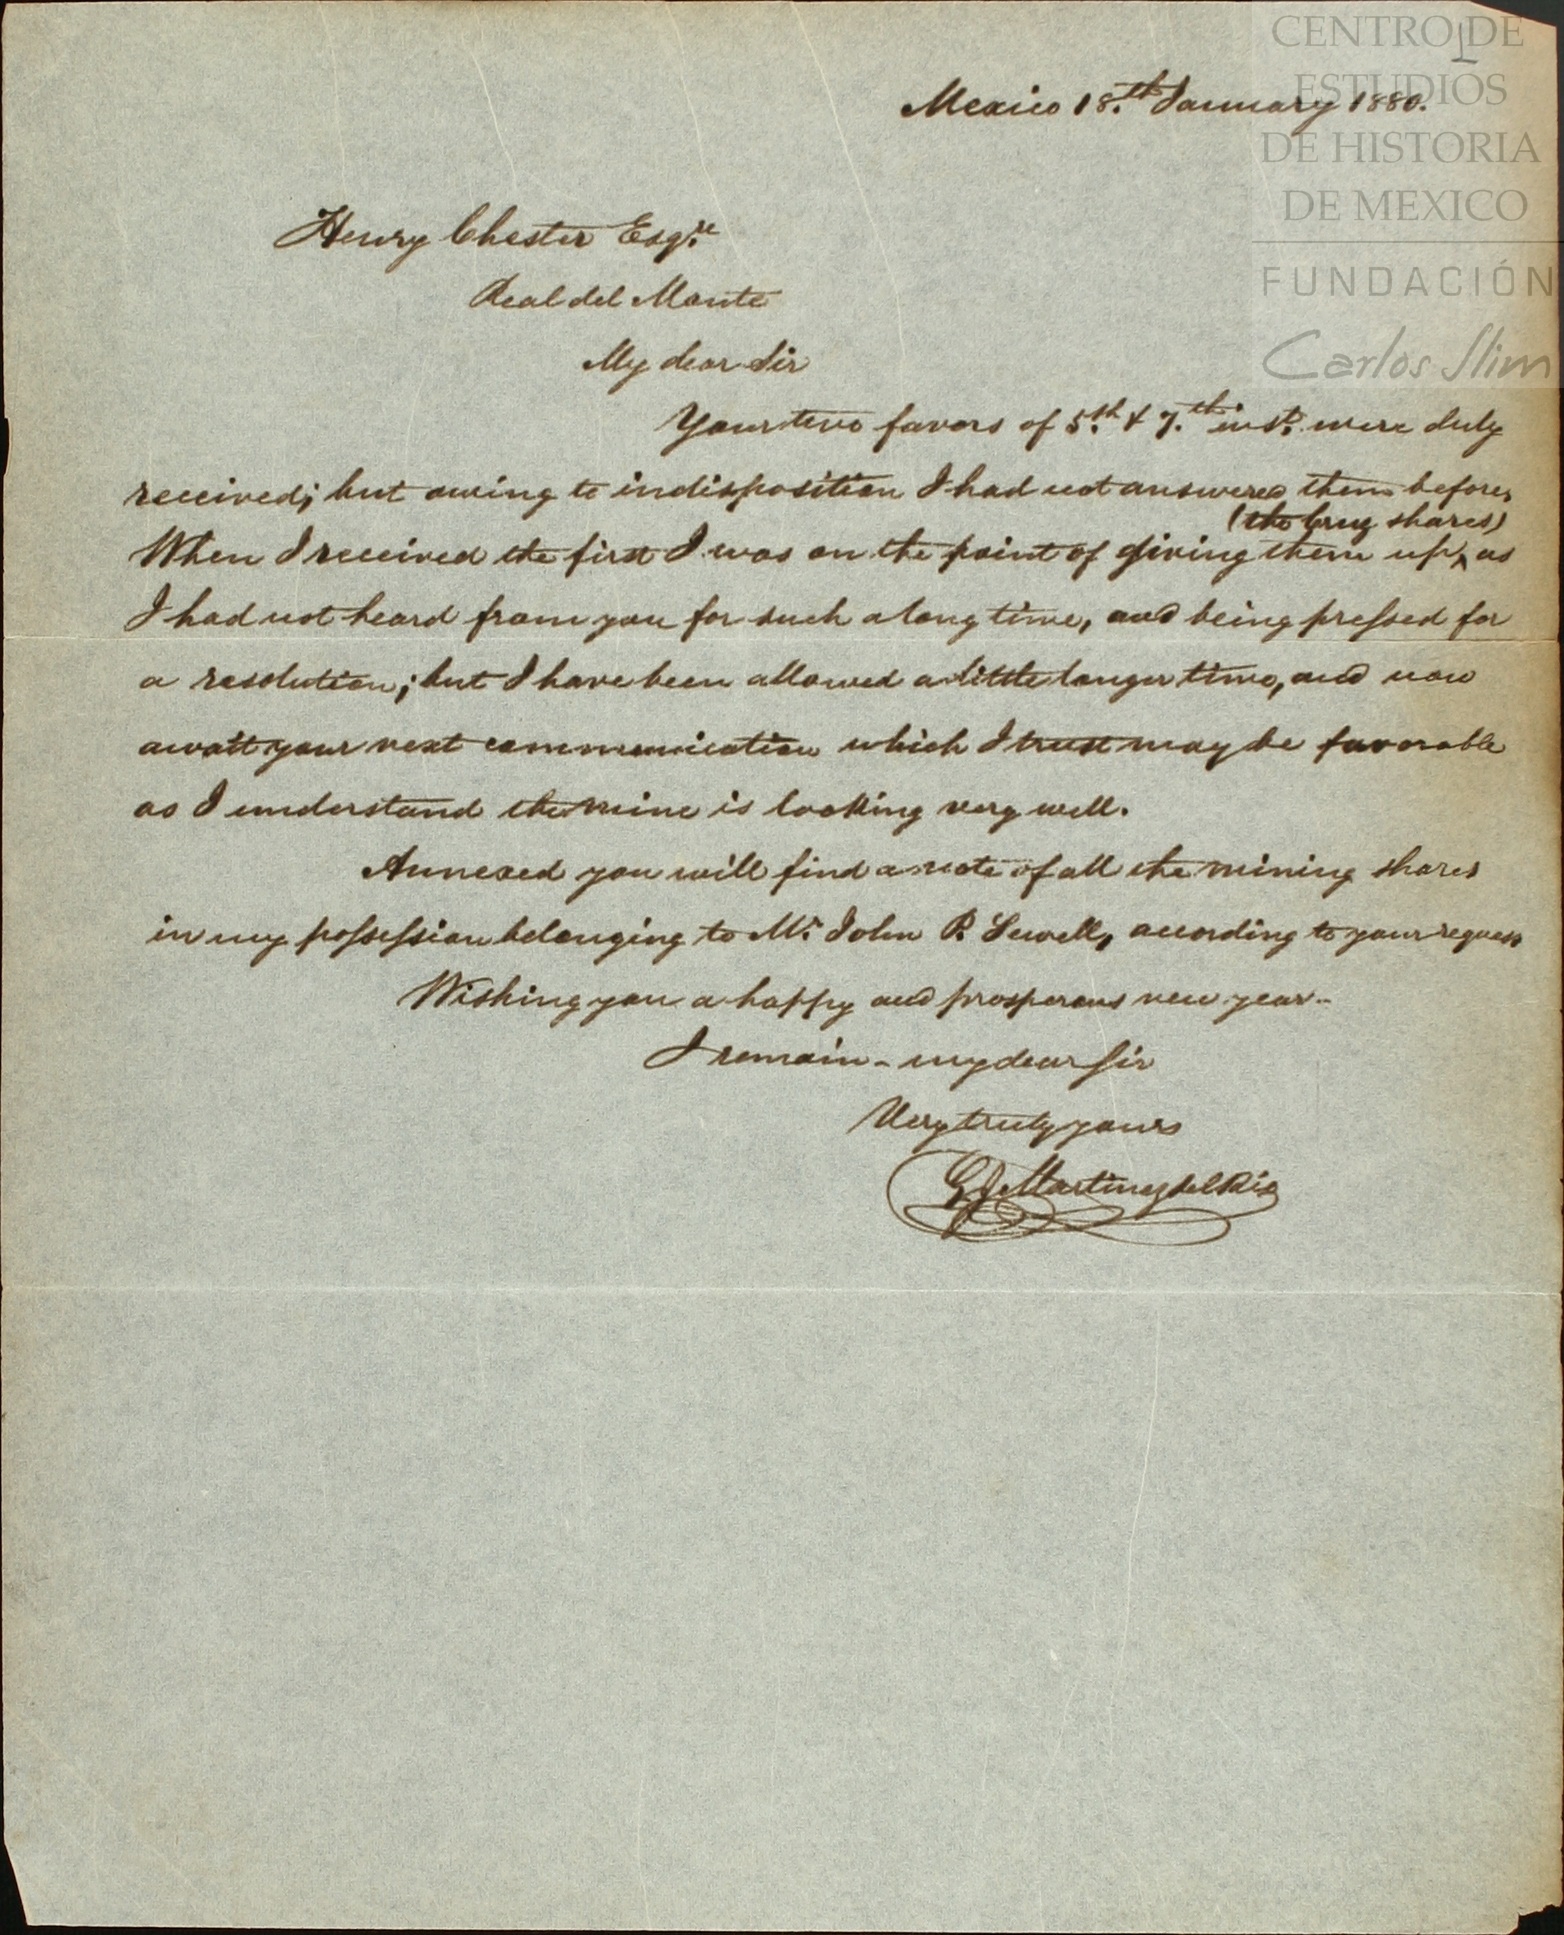 CENTRO DE
ESTUDIOS
DE HISTORIA
DE MEXICO
FUNDACIÓN
Carlos Slim
Mexico 18.th January 1880.
Henry Chester Esqre
Real del Monte
My dear Sir
Your two favors of 5.th & 7.th inst. were duly
received; but owing to indisposition I had not answered them before,
(the Cruz shares)
When I received the first I was on the point of giving them up, as
I had not heard from you for such a long time, and being pressed for
a resolution; but I have been allowed a little longer time, and now
await your next communication which I trust may be favorable
as I understand the mine is looking very well.
Annexed you will find a note of all the mining shares
in my possession belonging to Mr. John P. Sewell, according to your request
Wishing you a happy and prosperous new year-
I remain - my dear Sir
Very truly yours
G J Martinez del Rio